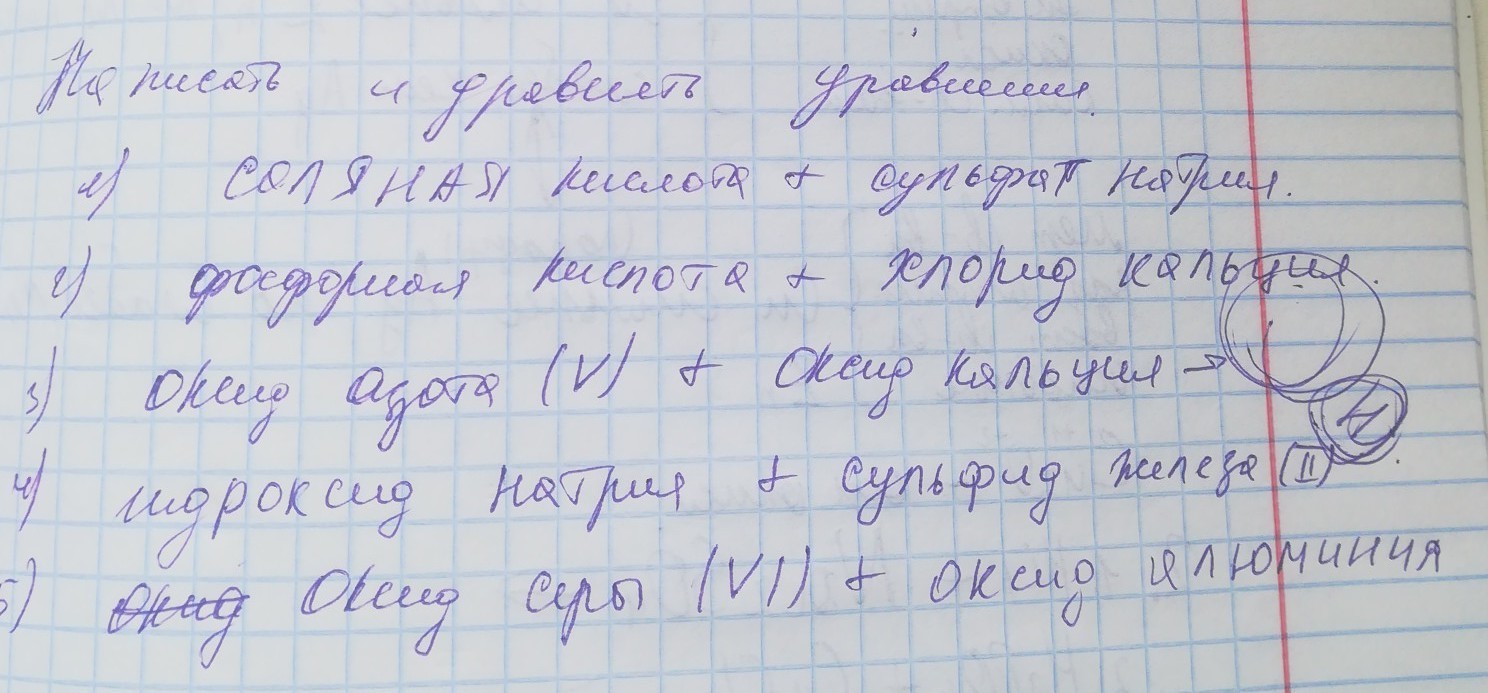 Написать и уравнять уравнения.
1) СОЛЯНАЯ кислота + сульфат натрия.
2) фосфорная кислота + хлорид кальция.
3) Оксид азота (V) + Оксид кальция →
4) гидроксид натрия + сульфид железа (II).
5) Оксид серы (VI) + оксид алюминия